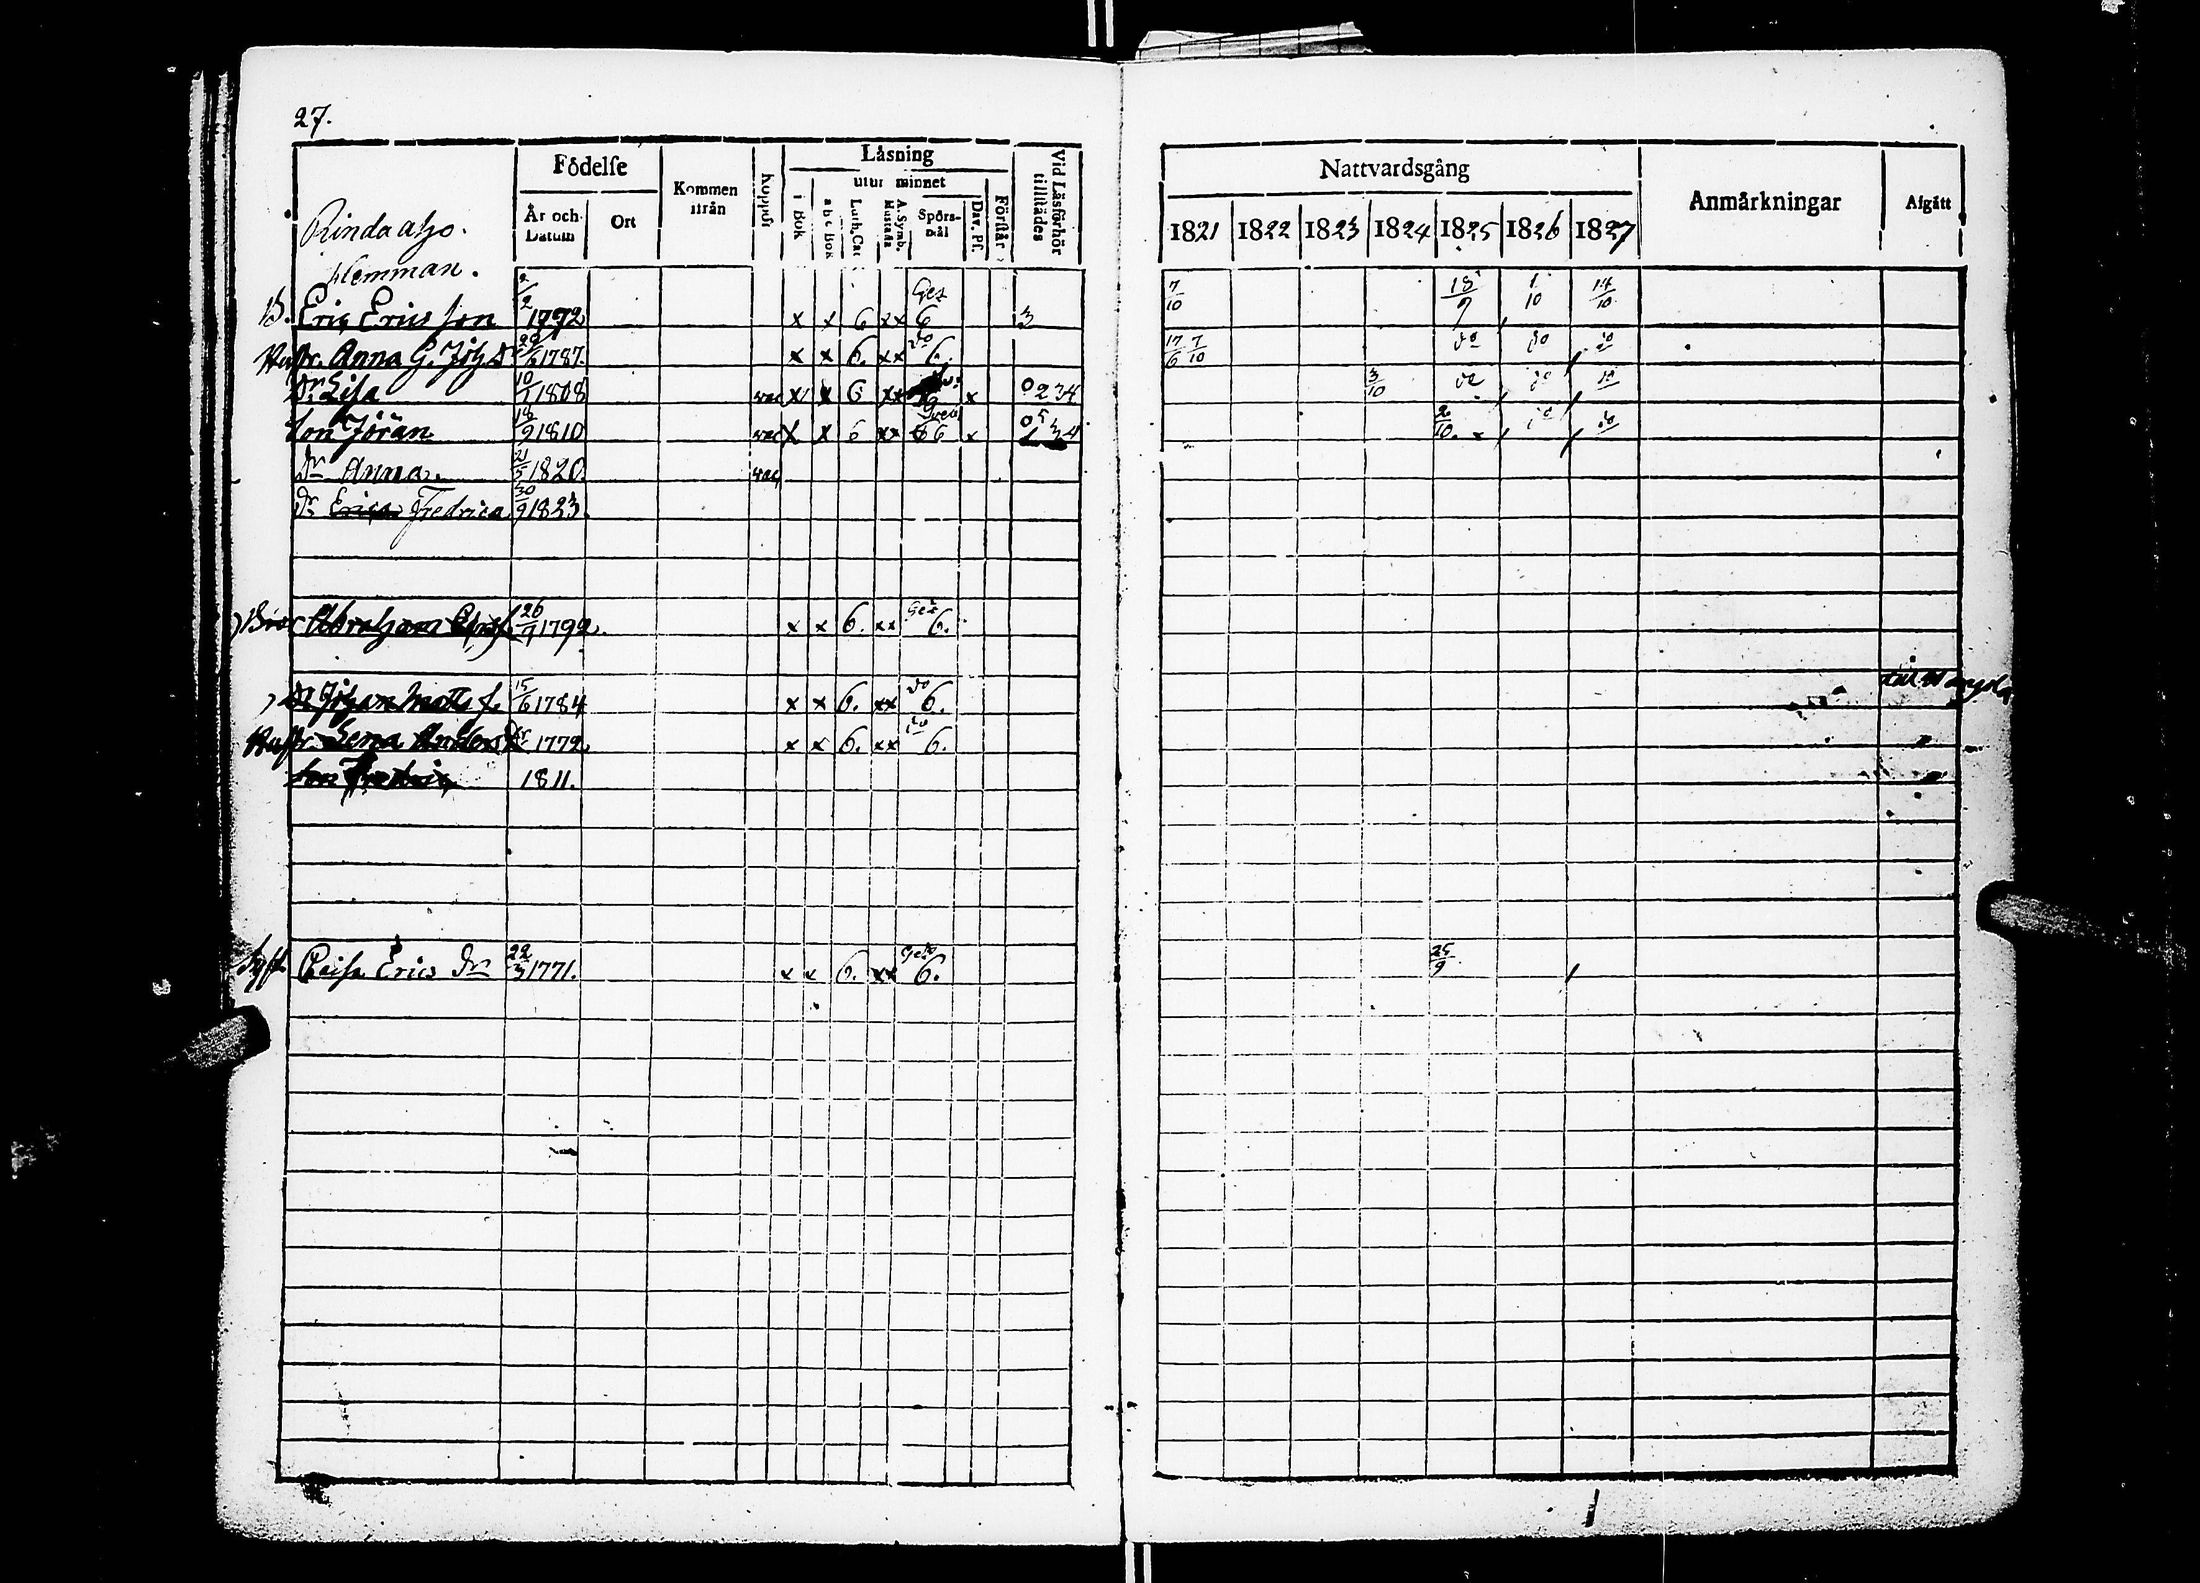 27.
Födelse
Kommen ifrån
Koppor
Läsning
utur minnet
i Bok
a b c Bok
Luth. Cat
A. Symb. Hustafla
Spörsmål
Dav. Ps.
Förstår
Vid Läsförhör tillstädes
År och Datum
Ort
Nattvardsgång
1821 1822 1823 1824 1825 1826 1827
Anmärkningar
Afgått
Rinda
Hemman.
B. Eric Ericsson 2/2 1792 x x 6 xx 6 3 7/10 18/9 1/10 14/10
Hustr. Anna G. Joh. Dr 6 1787. x x 6. xx do 6. 17/6 7/10 do do do
Dr Lisa 10/1 1808 vac x x 6 xx x 0 2 3 4 3/10 do do do
Son Jöran 18/9 1810 vac x x 6 xx 6 x 0 5 3 4 2/10. do do
Dr Anna. 21/5 1820. vac
Dr Erica Fredrica 30/9 1823.
Bror Abraham 26/9 1792. x x 6. xx 6.
Johan Matts f. 15/6 1784 x x 6. xx do 6.
Hustr. Lena Anders Dr 1772 x x 6. xx do 6.
Son 1811.
Syst. Caisa Erics Dr 22/3 1771. x x 6. xx 6. 25/9